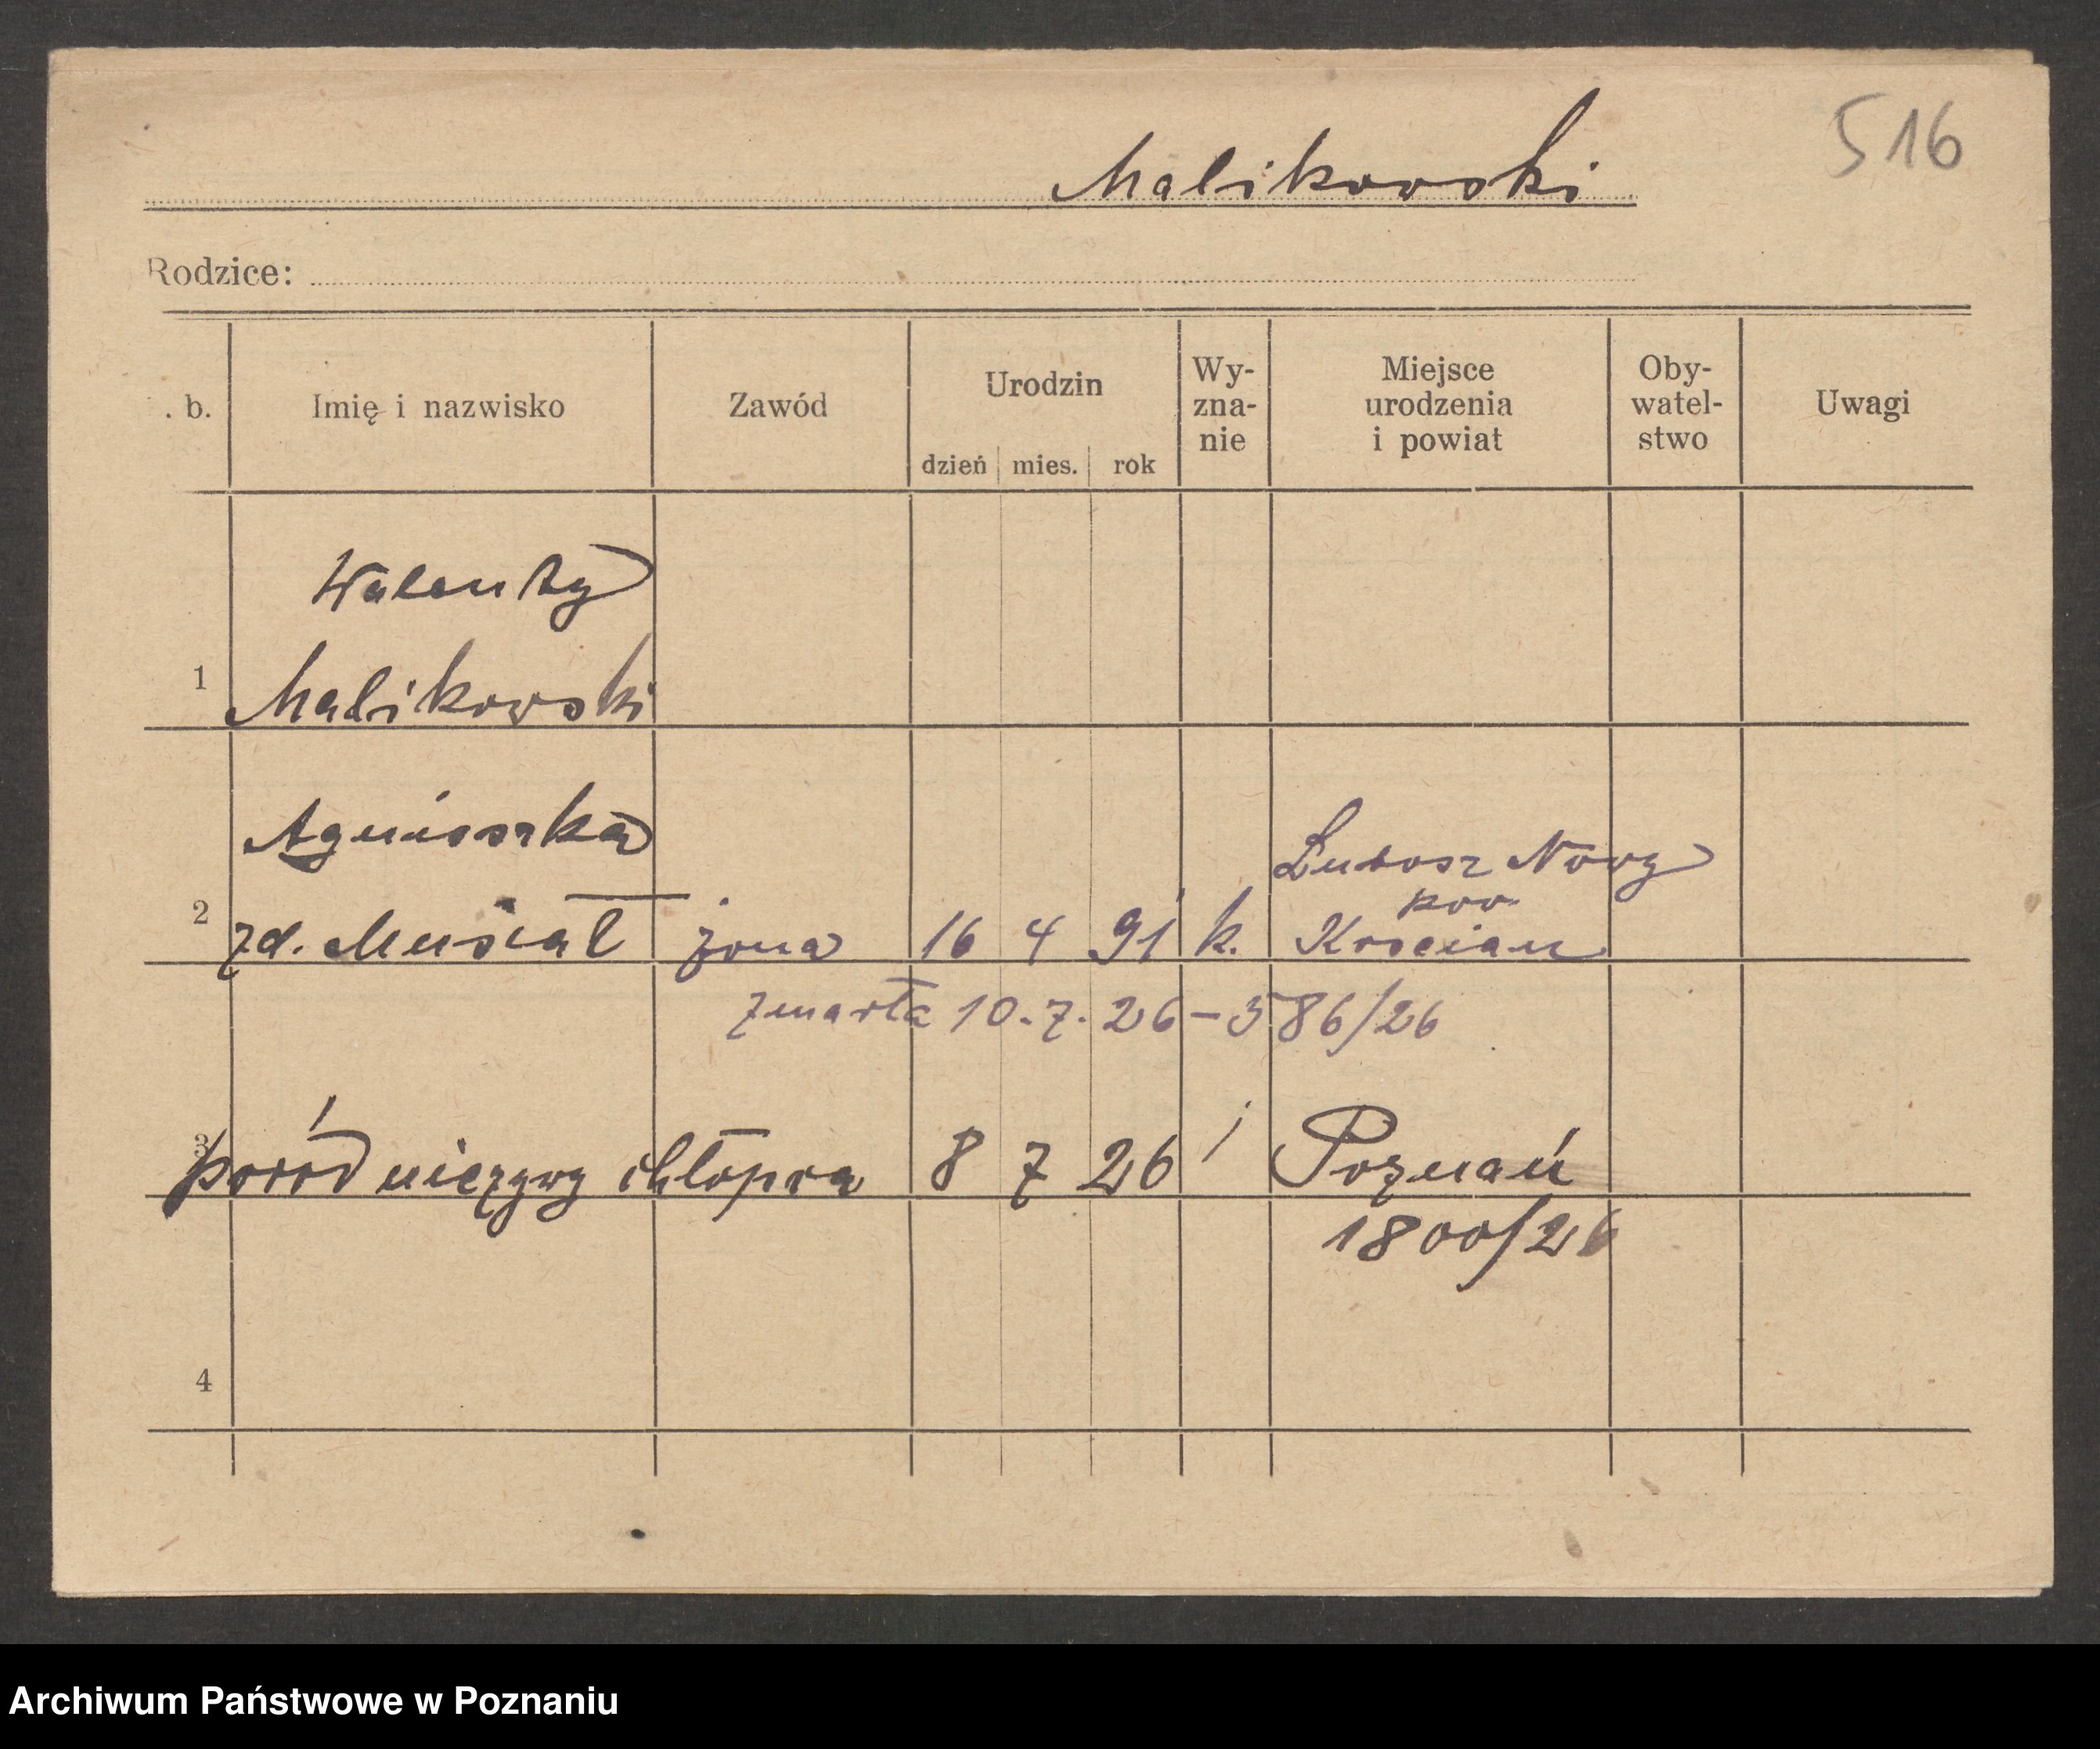 516
Malikowski
Rodzice:
. b.
Imię i nazwisko
Zawód
Urodzin
dzień mies. rok
Wy-
zna-
nie
Miejsce
urodzenia
i powiat
Oby-
watel-
stwo
Uwagi
Walenty
1 Malikowski
Agnieszka
Lubosz Nowy
pow.
2 zd. Musiał żona 16 4 91 k. Kościan
zmarła 10.7.26 – 586/26
3 poród nieżywy chłopca 8 7 26 Poznań
1800/26
4
Archiwum Państwowe w Poznaniu